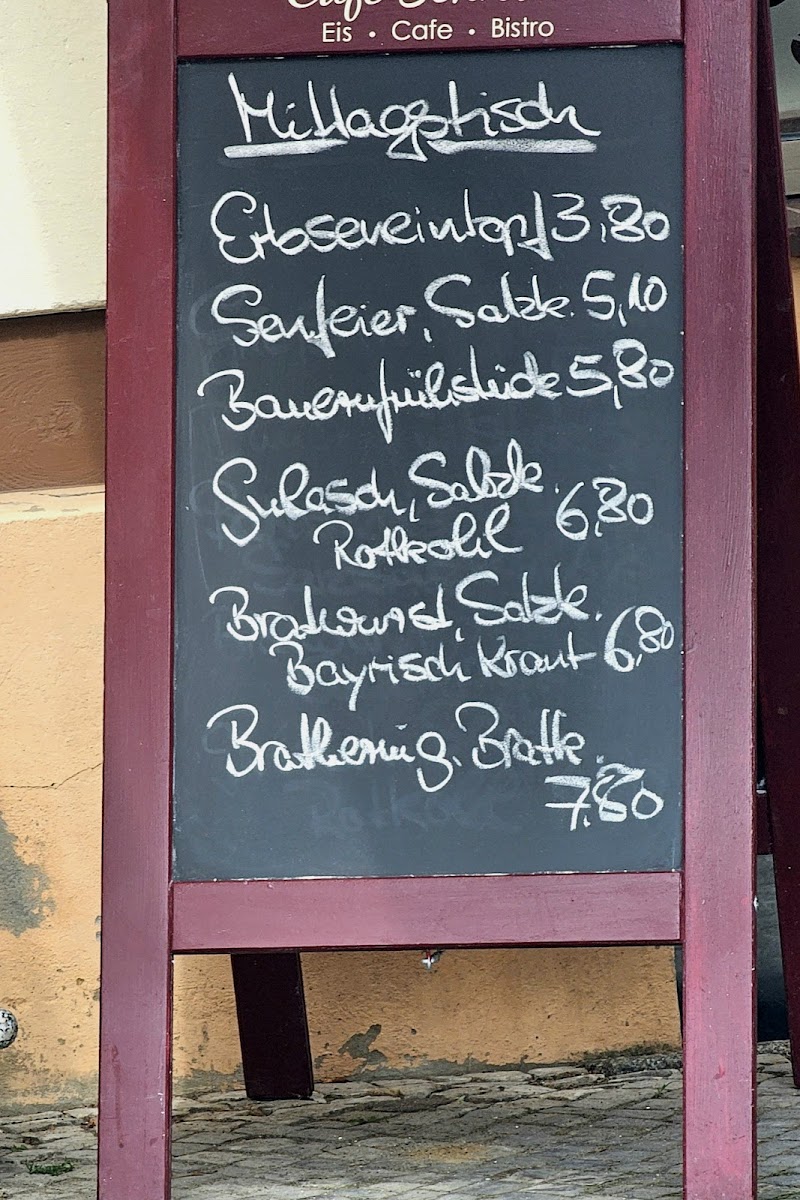 Eis • Cafe • Bistro
Mittagstisch
Erbseneintopf 3,80
Senfeier, Salzk. 5,10
Bauernfrühstück 5,80
Gulasch, Salzk. 6,80
Rotkohl
Bratwurst, Salzk.
Bayrisch Kraut 6,80
Brathering, Bratk.
7,80